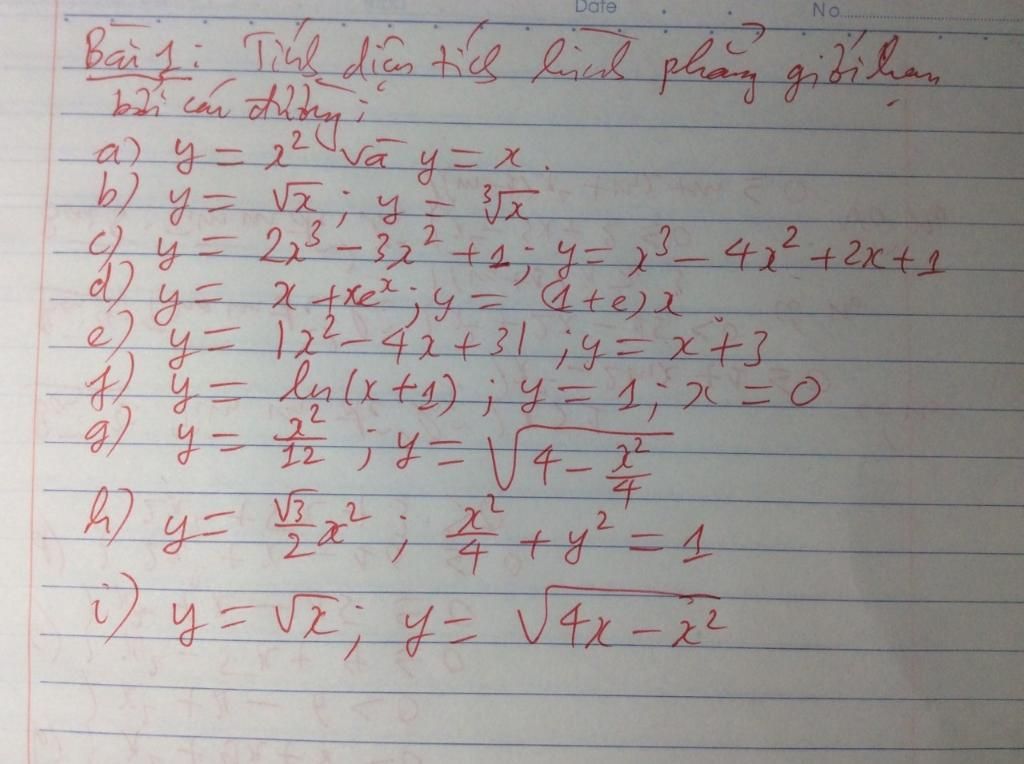 Date No
Bài 1: Tính diện tích hình phẳng giới hạn
bởi các đường:
a) y = x² và y = x.
b) y = √x ; y = ∛x
c) y = 2x³ – 3x² + 1 ; y = x³ – 4x² + 2x + 1
d) y = x + xeˣ ; y = (1 + e) x
e) y = |x² – 4x + 3| ; y = x + 3
f) y = ln(x + 1) ; y = 1 ; x = 0
g) y = x²/12 ; y = √(4 – x²/4)
h) y = √3/2 x² ; x²/4 + y² = 1
i) y = √x ; y = √(4x – x²)